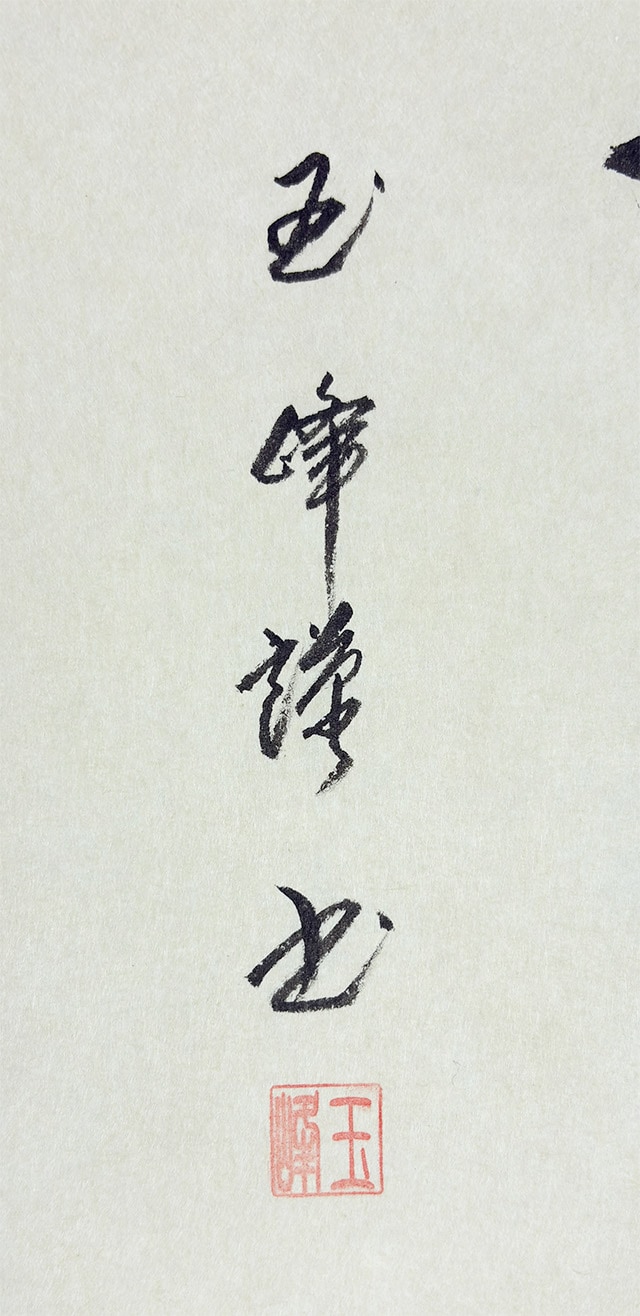 玉峰謹书
玉峰